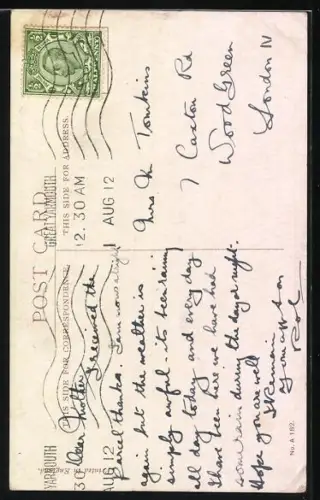 POST CARD
THIS SIDE FOR CORRESPONDENCE.
THIS SIDE FOR ADDRESS.
GREAT YARMOUTH
12.30 AM
AUG 12
YARMOUTH
30
AUG 12
HALFPENNY
Dear Mother
I received the
parcel thanks. I am
again but the weather is
simply awful - its been raining
all day today and every day
I have been here we have had
some rain during the day or night.
Hope you are well
I Remain
Your
Mrs Tomkins
7 Caxton Rd
Wood Green
London N
No. A 182.